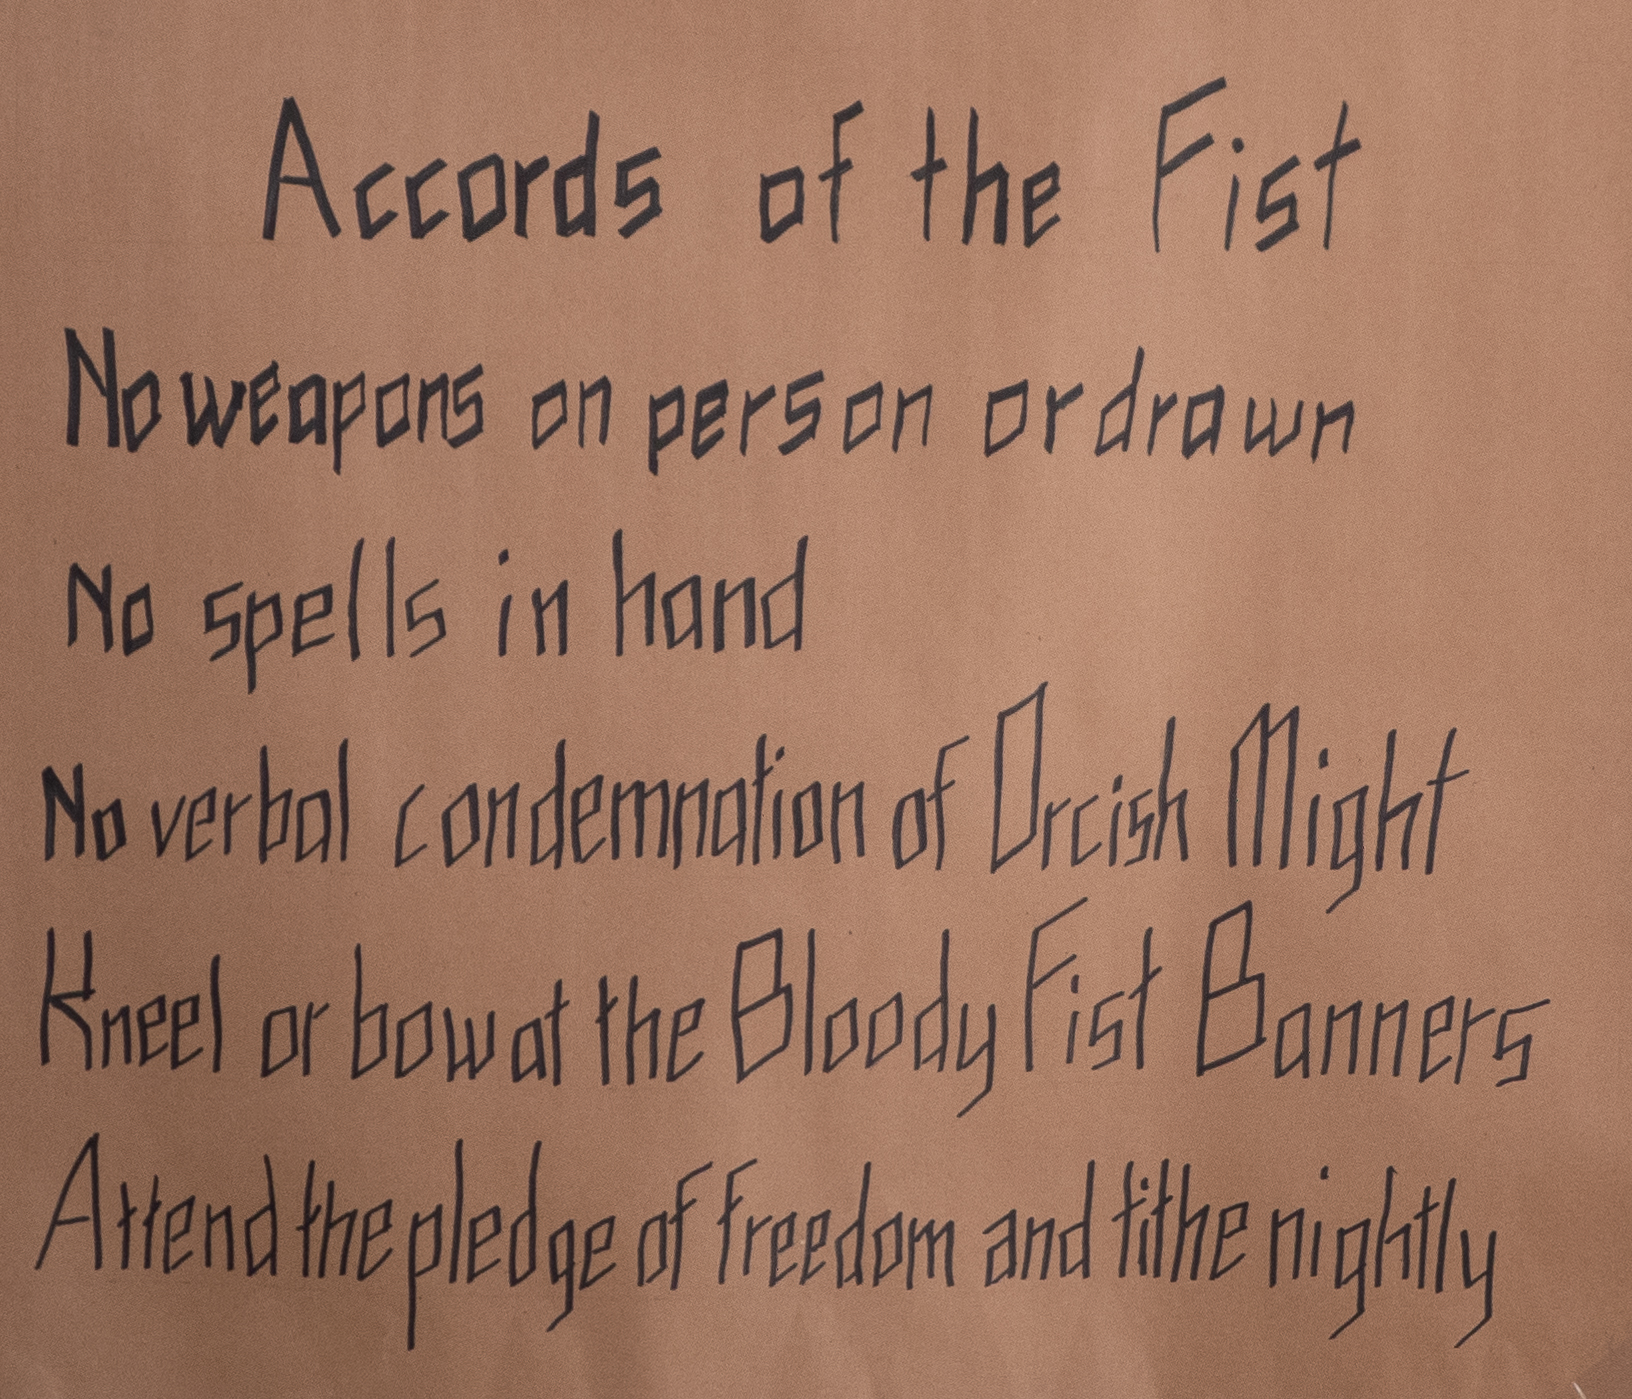 Accords of the Fist
No weapons on person or drawn
No spells in hand
No verbal condemnation of Orcish Might
Kneel or bow at the Bloody Fist Banners
Attend the pledge of freedom and tithe nightly